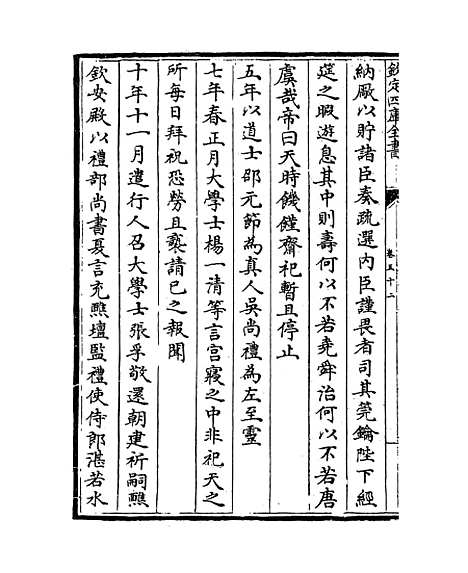 欽定四庫全書
卷五十二
納厰以貯諸臣奏疏選內臣謹畏者司其筦鑰陛下經
筵之暇遊息其中則壽何以不若堯舜治何以不若唐
虞哉帝曰天時饑饉齋祀暫且停止
五年以道士邵元節為真人吳尚禮為左至靈
七年春正月大學士楊一清等言宫寢之中非祀天之
所每日拜祝恐勞且褻請已之報聞
十年十一月遣行人召大學士張孚敬還朝建祈嗣醮
欽安殿以禮部尚書夏言充醮壇監禮使侍郎湛若水